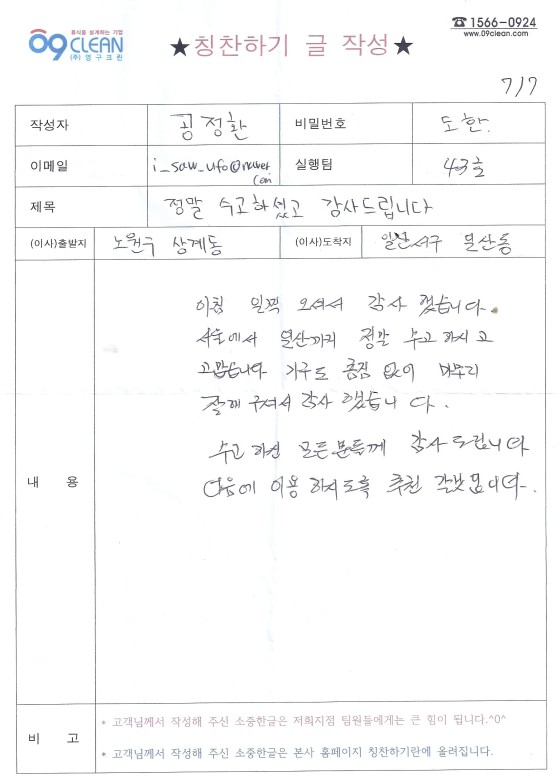 음식을 설계하는 기업
09 CLEAN
(주)영구크린
★칭찬하기 글 작성★
☎ 1566-0924
www.09clean.com
7/7
작성자 공정환 비밀번호 도한.
이메일 i_saw_ufo@naver.com 실행팀 43호
제목 정말 수고하셨고 감사드립니다
(이사)출발지 노원구 상계동 (이사)도착지 일산서구 일산동
내 용
아침 일찍 오셔서 감사 했습니다.
서울에서 일산까지 정말 수고 하시고
고맙습니다 가구도 흠짐 없이 마무리
잘해 주셔서 감사 했습니다.
수고 하신 모든분들께 감사 드립니다
다음에 이용 하시도록 추천
비 고
* 고객님께서 작성해 주신 소중한글은 저희지점 팀원들에게는 큰 힘이 됩니다.^0^
* 고객님께서 작성해 주신 소중한글은 본사 홈페이지 칭찬하기란에 올려집니다.